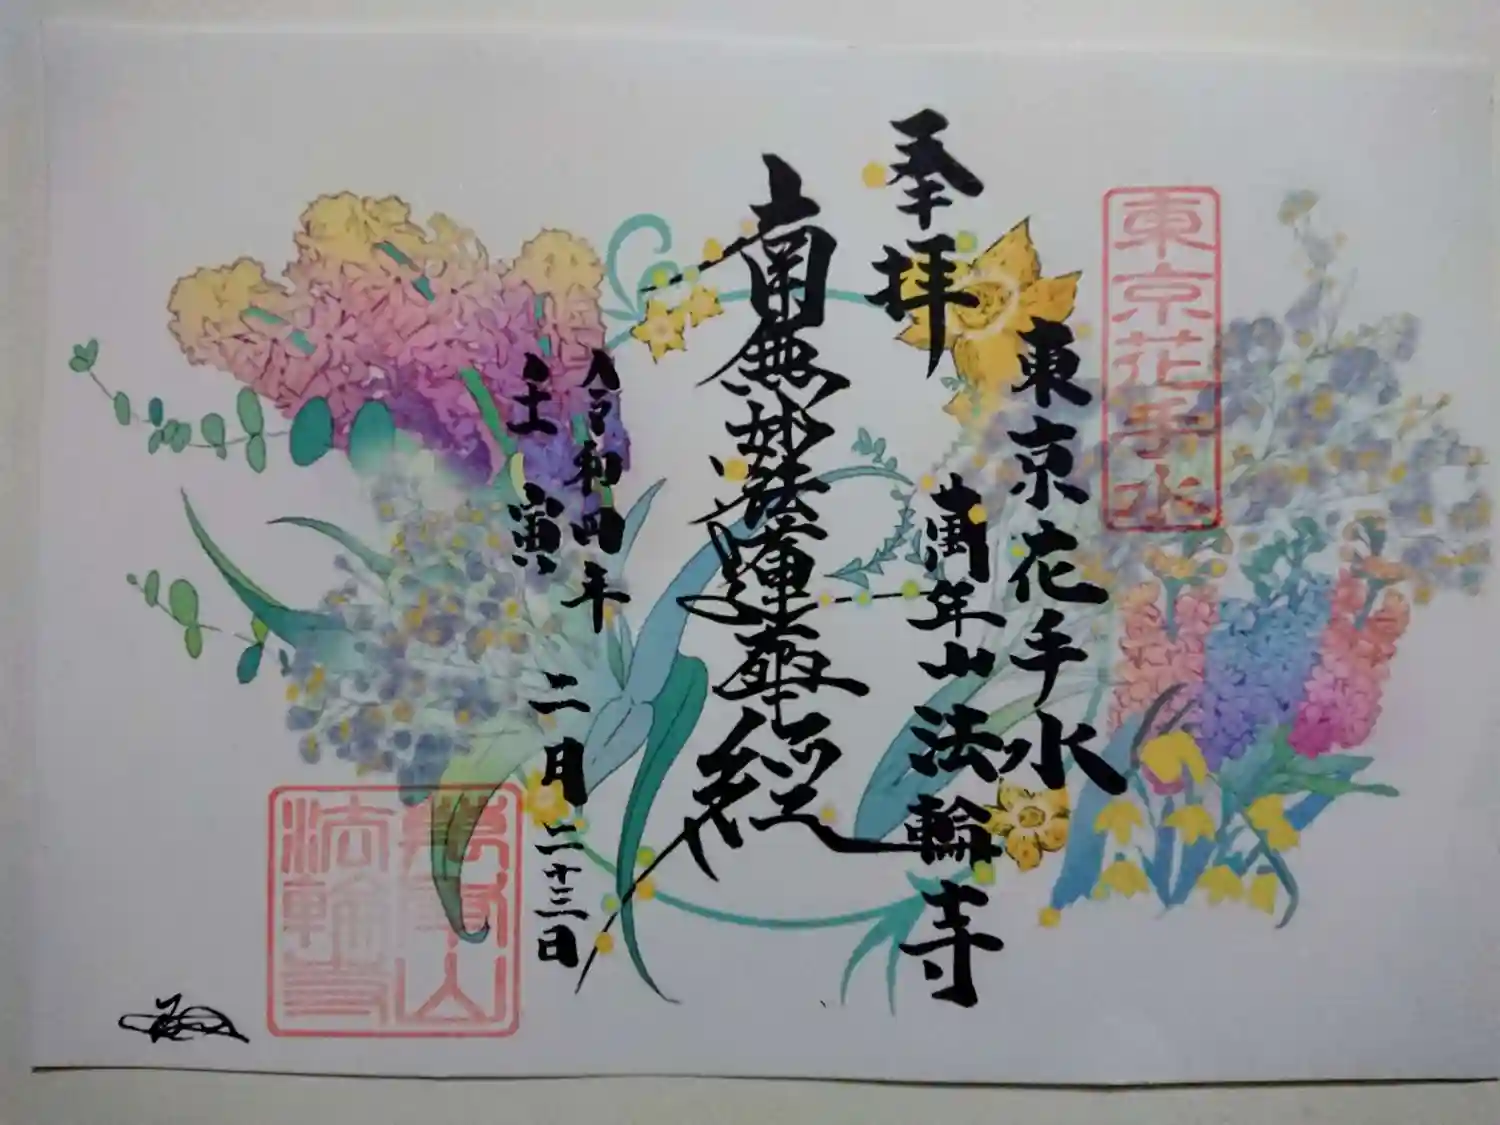 東京花手水
奉拝
東京花手水
萬年山法輪寺
南無妙法蓮華経
令和四年
壬寅
二月二十三日
萬年山
法輪寺